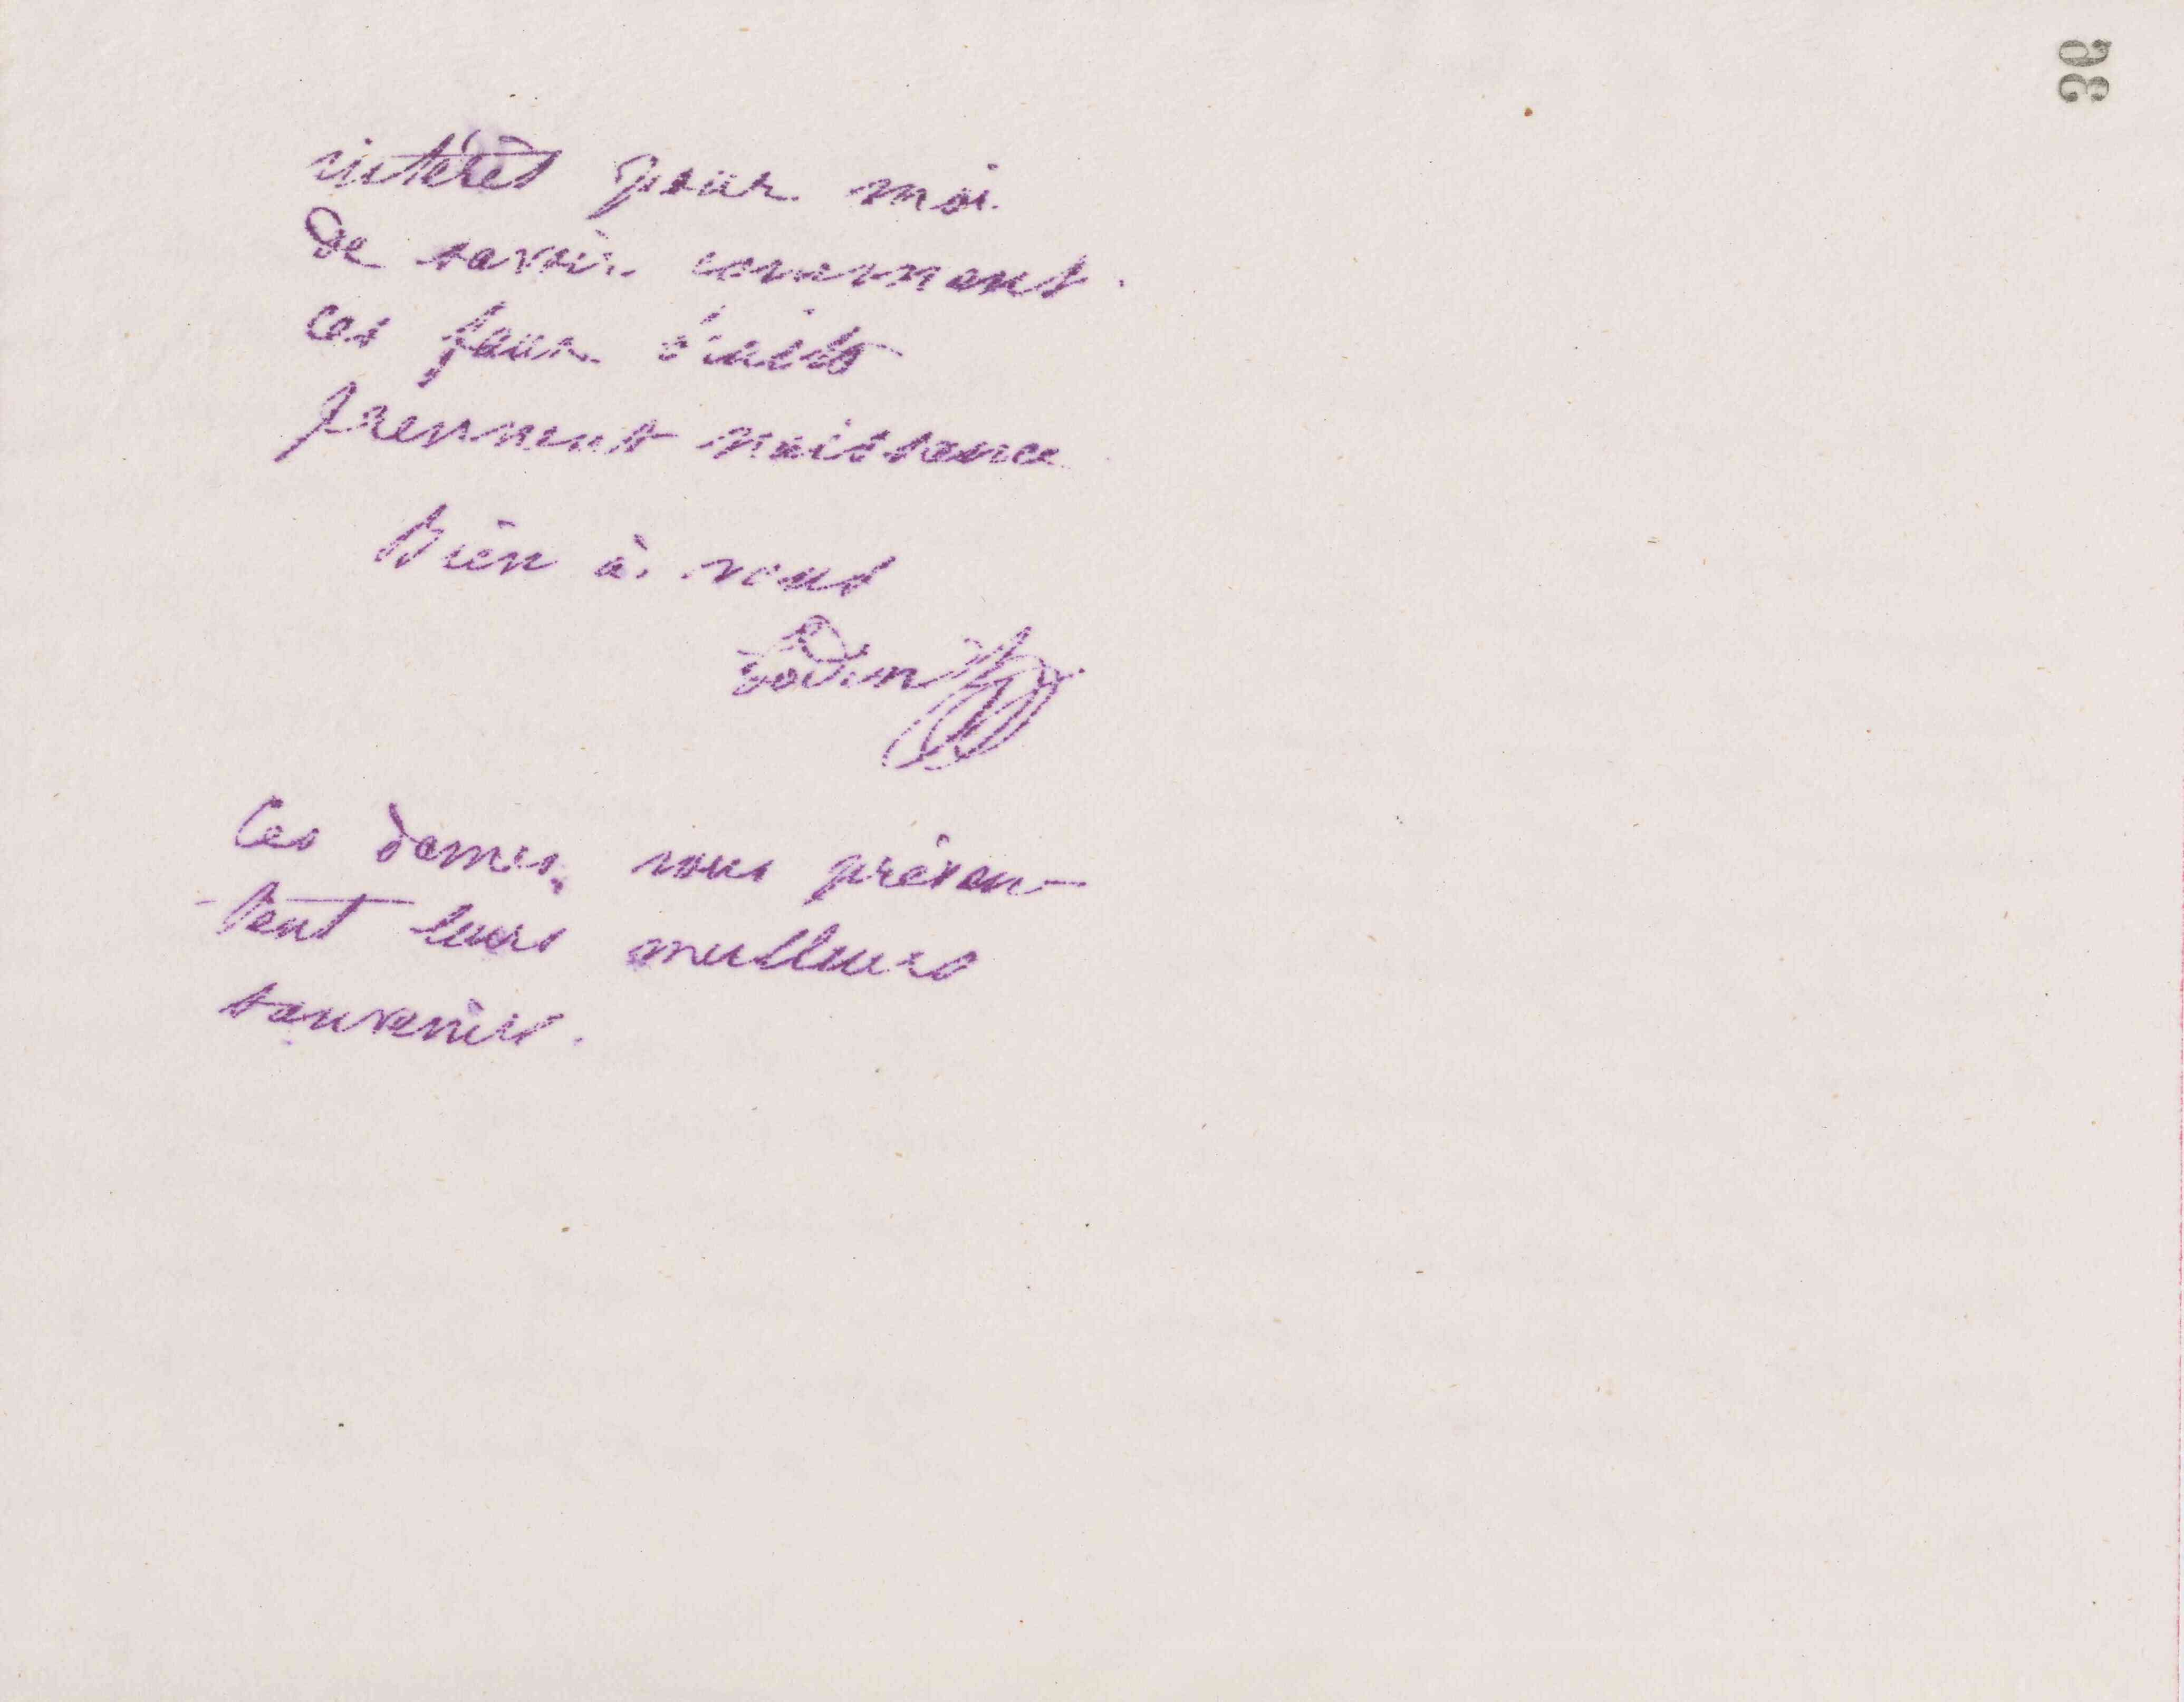 intérêt pour moi
de savoir comment
ces faux bruits
prennent naissance
Bien à vous
Godin
Ces dames vous présen-
-tent leurs meilleurs
souvenirs.